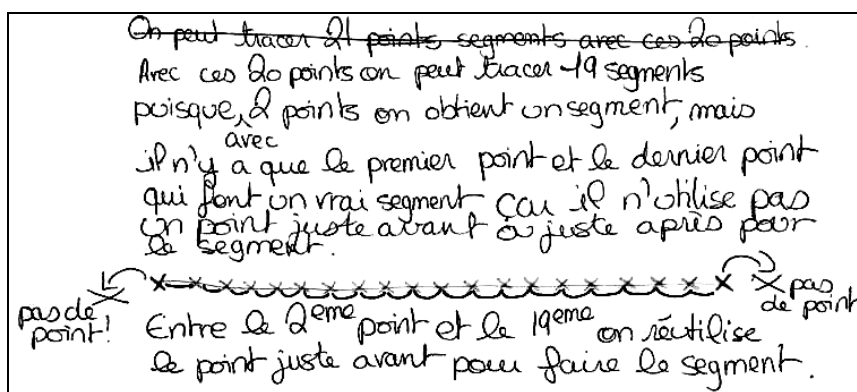 On peut tracer 21 points segments avec ces 20 points.
Avec ces 20 points on peut tracer 19 segments
puisque, avec 2 points on obtient un segment, mais
il n'y a que le premier point et le dernier point
qui font un vrai segment car il n'utilise pas
un point juste avant ou juste après pour
le segment.
pas de point!
pas de point
Entre le 2eme point et le 19eme on réutilise
le point juste avant pour faire le segment.